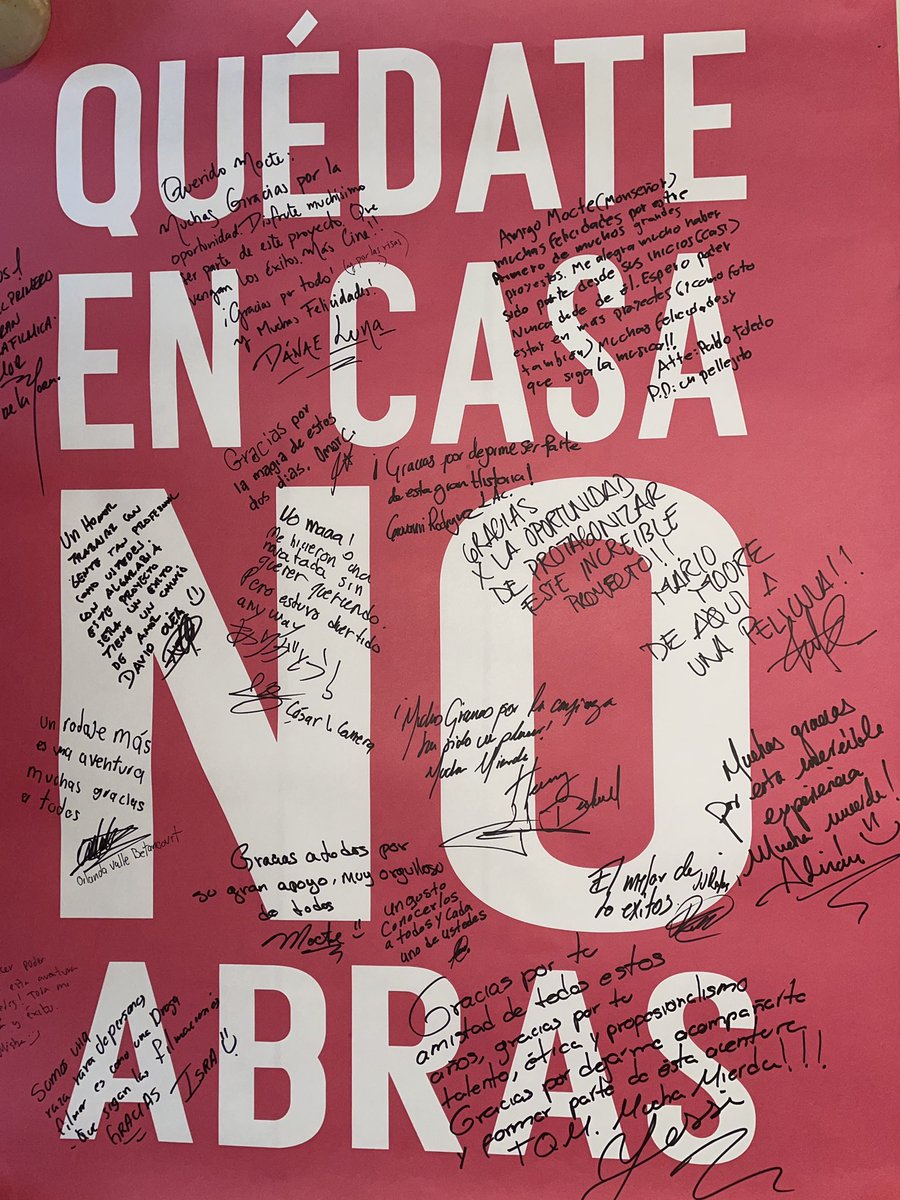 QUÉDATE
EN CASA
NO
ABRAS
Querido Mocte:
Muchas Gracias por la
oportunidad. Disfruté muchísimo
ser parte de este proyecto. Que
vengan los éxitos Más Cine!!
¡Gracias por todo! (y por las risas)
y Muchas Felicidades!
DÁNAE Luna
Amigo Mocte (Monseñor)
muchas felicidades por este
Primero de muchos grandes
proyectos. Me alegra mucho haber
sido parte desde sus inicios (casi)
Nunca dude de él. Espero poder
estar en más proyectos (como foto
también) Muchas felicidades y
que siga la música!!
Atte: Pablo Toledo
P.D: un pellejito
PRIMERO
GRAN
Gracias por
la magia de estos
dos dias. Omar C.
¡Gracias por dejarme ser parte
de esta gran Historia!
Giovanni Rodríguez
UN HONOR
TRABAJAR CON
GENTE TAN PROFESIONAL
COMO USTEDES.
CON ALGARABIA
ESTE PROYECTO
SERA UN EXITO
TIENE UN CAMINO
DE AMOR.
DAVID
No maaa!
Me hicieron una
mal, sin
querer queriendo.
Pero estuvo divertido
any way
César L. Camera
GRACIAS
X LA OPORTUNIDAD
DE PROTAGONIZAR
ESTE INCREIBLE
PROYECTO!!
MARIO
MOORE
DE AQUI A
UNA PELICULA!!
un rodaje más
es una aventura
muchas gracias
a todos
Orlando Valle Betancourt
¡Muchas Gracias por la confianza
ha sido un placer!
Mucha Mierda
Muchas gracias
por esta increíble
experiencia
¡Mucha mierda!
Adrián
Gracias a todos por
su gran apoyo, muy orgulloso
de todos
Mocte
un gusto
Conocerlos
a todos y cada
uno de ustedes
El mejor de
lo exitos
poder
esta aventura
Toda mi
y Éxito.
Somos una
raza rara de personas
filmar es como una Droga
que sigan las filmaciones
GRACIAS ISRA
Gracias por tu
amistad de todos estos
años, gracias por tu
talento, ética y proposionalismo
Gracias por dejarme acompañarte
y formar parte de esta aventura
TQM. Mucha Mierda!!!
Yessi